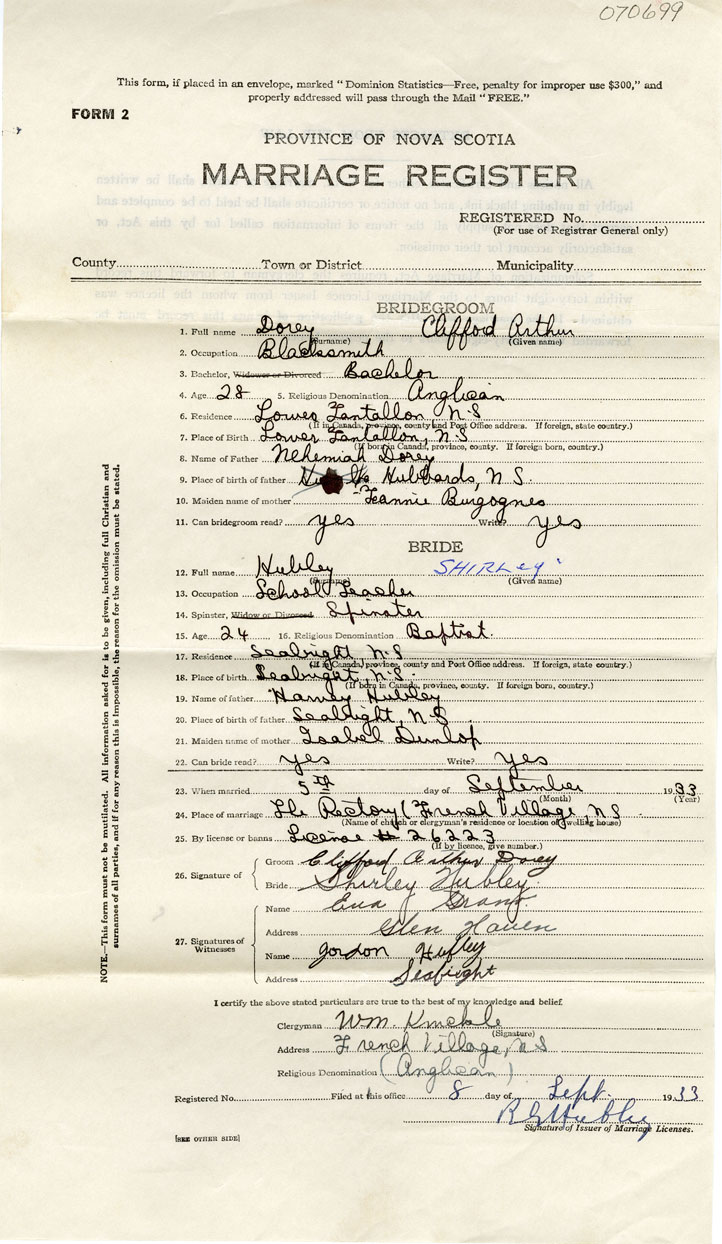 070699
This form, if placed in an envelope, marked "Dominion Statistics—Free, penalty for improper use $300," and
properly addressed will pass through the Mail "FREE."
FORM 2
PROVINCE OF NOVA SCOTIA
MARRIAGE REGISTER
REGISTERED No.
(For use of Registrar General only)
County Town or District Municipality
BRIDEGROOM
1. Full name Dorey Clifford Arthur
(Surname) (Given name)
2. Occupation Blacksmith
3. Bachelor, Widower or Divorced Bachelor
4. Age 28 5. Religious Denomination Anglican
6. Residence Lower Tantallon N.S
(If in Canada, province, county and Post Office address. If foreign, state country.)
7. Place of Birth Lower Tantallon, N.S
(If born in Canada, province, county. If foreign born, country.)
8. Name of Father Nehemiah Dorey
9. Place of birth of father Hubbards, N S.
10. Maiden name of mother Jeannie Burgognes
11. Can bridegroom read? yes Write? yes
BRIDE
12. Full name Hubley SHIRLEY
(Surname) (Given name)
13. Occupation School Teacher
14. Spinster, Widow or Divorced Spinster
15. Age 24 16. Religious Denomination Baptist.
17. Residence Seabright N.S
(If in Canada, province, county and Post Office address. If foreign, state country.)
18. Place of birth Seabright, N.S.
(If born in Canada, province, county. If foreign born, country.)
19. Name of father Harvey Hubley
20. Place of birth of father Seabright, N.S
21. Maiden name of mother Isabel Dunlop
22. Can bride read? yes Write? yes
23. When married 5th day of September 1933
(Month) (Year)
24. Place of marriage The Rectory (French Village, N S
(Name of church or clergyman's residence or location of dwelling house)
25. By license or banns License # 26223
(If by licence, give number.)
26. Signature of
Groom Clifford Arthur Dorey
Bride Shirley Hubley
27. Signatures of Witnesses
Name Eva J Grant
Address Glen Haven
Name Gordon Hubley
Address Seabright
NOTE.—This form must not be mutilated. All information asked for is to be given, including full Christian and
surnames of all parties, and if for any reason this is impossible, the reason for the omission must be stated.
I certify the above stated particulars are true to the best of my knowledge and belief.
Clergyman Wm.
(Signature)
Address French Village, N S
Religious Denomination (Anglican)
Registered No. Filed at this office 8 day of Sept. 1933
R G Hubley
Signature of Issuer of Marriage Licenses.
[SEE OTHER SIDE]